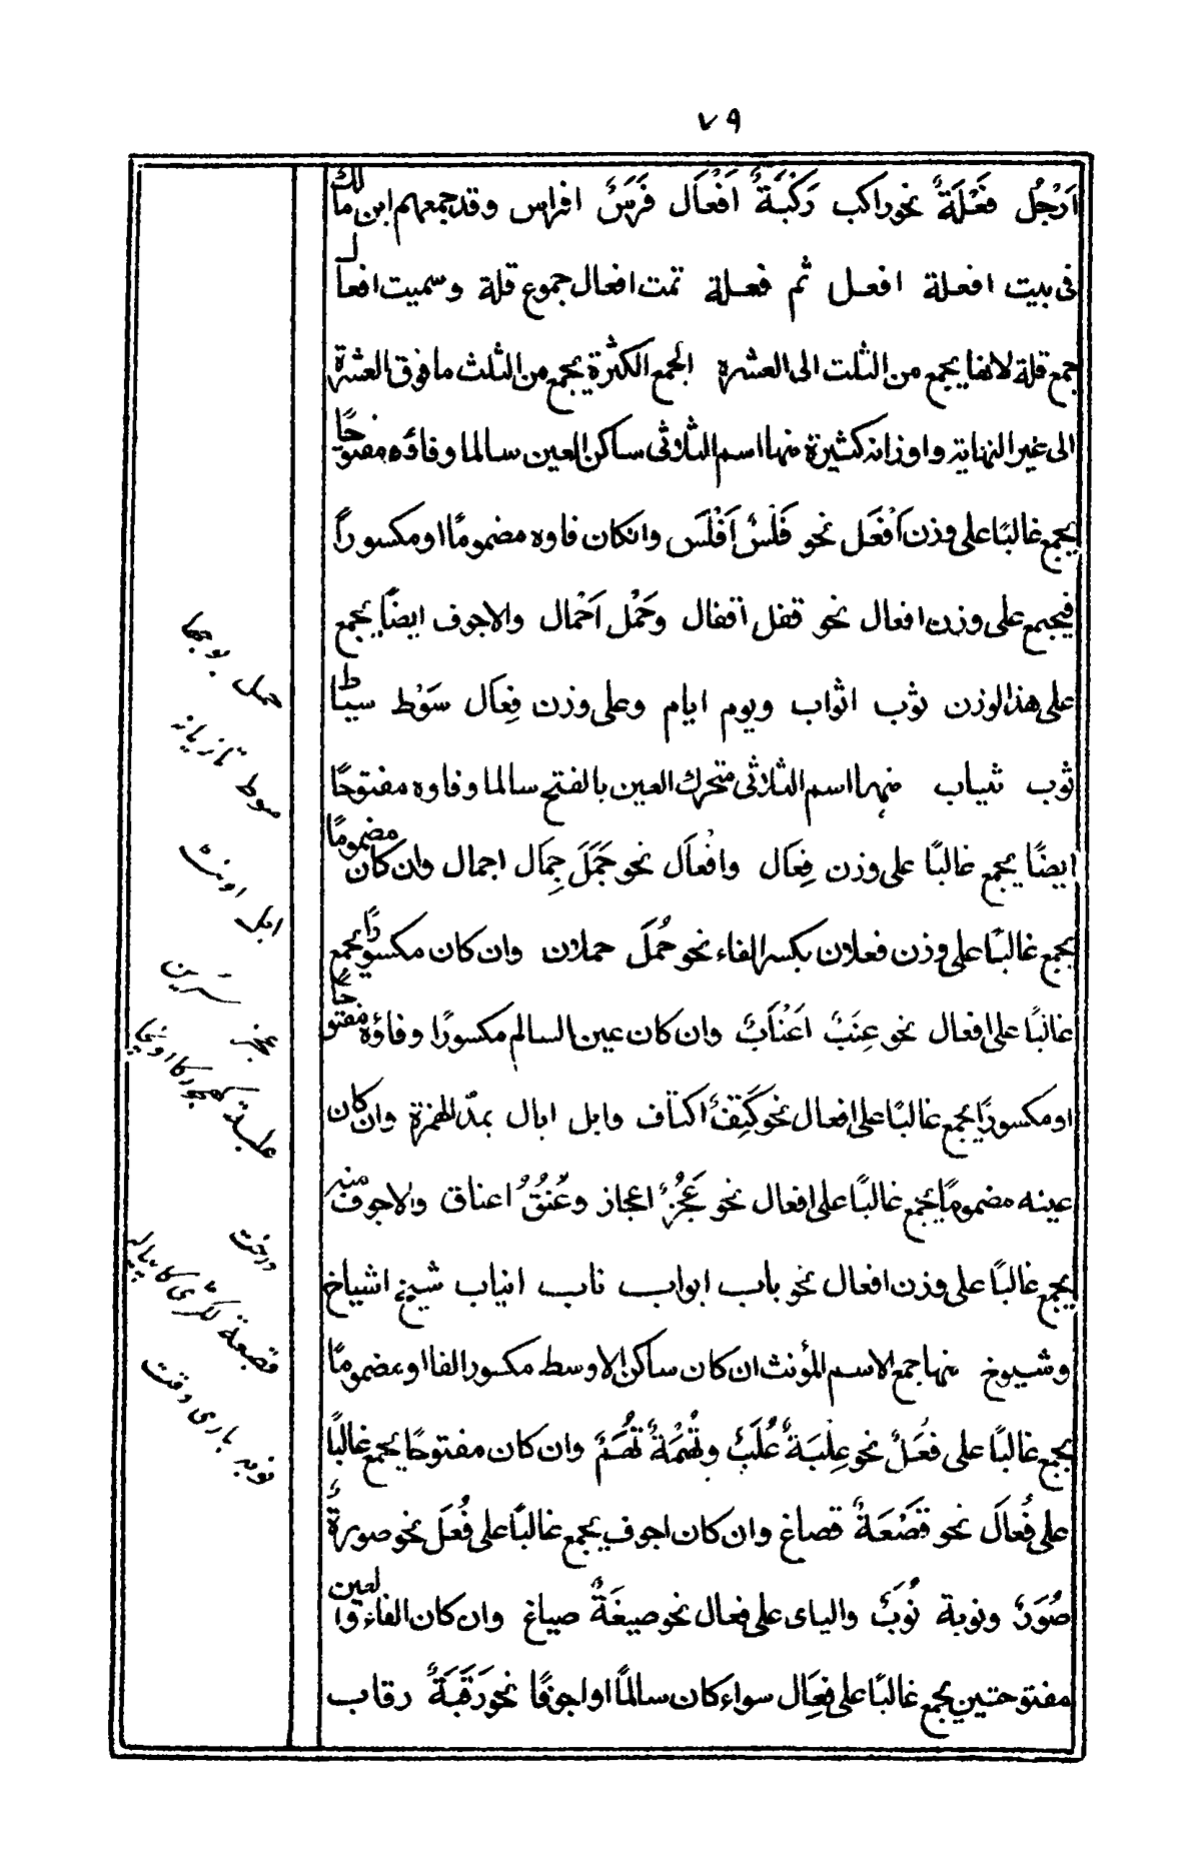 ٧٩
اَرْجُلُ فَعْلَةٌ نحو راكب رَكْبَةٌ اَفْعَال فَرَسٌ افراس وقد جمعهم ابن مالك
فى بيت افعلة افعل ثم فعلة تمت افعال جموع قلة وسميت افعال
جمع قلة لانها يجمع من الثلث الى العشرة الجمع الكثرة يجمع من الثلث ما فوق العشرة
الى غير النهاية واوزانه كثيرة منها اسم الثلاثى ساكن العين سالما وفاؤه مفتوحًا
يجمع غالبًا على وزن اَفْعَل نحو فَلْسٌ اَفْلَس وانكان فاوه مضمومًا او مكسورًا
فيجمع على وزن افعال نحو قفل اقفال وحَمْل اَحْمال والاجوف ايضًا يجمع
على هذالوزن ثوب اثواب ويوم ايام وعلى وزن فِعَال سَوْط سياط
ثوب ثياب منها اسم الثلاثى متحرك العين بالفتح سالما وفاوه مفتوحًا
ايضًا يجمع غالبًا على وزن فِعَال وافْعَال نحو جَمَلَ جِمَال اجمال وان كان مضمومًا
يجمع غالبًا على وزن فعلان بكسر الفاء نحو حُمَلَ حملان وان كان مكسورًا يجمع
غالبًا على افعال نحو عِنَبٌ اَعْنَابٌ وان كان عين السالم مكسورًا وفاؤه مفتوحًا
او مكسورًا يجمع غالبًا على افعال نحو كَتِفٌ اكتاف وابل ابال بمدّ الهمزة وان كان
عينه مضمومًا يجمع غالبًا على افعال نحو عَجُزٌ اعجاز وعُنُقٌ اعناق والاجوف منه
يجمع غالبًا على وزن افعال نحو باب ابواب ناب انياب شيخ اشياخ
وشيوخ منها جمع الاسم المؤنث ان كان ساكن الاوسط مكسور الفا او مضمومًا
يجمع غالبًا على فعَلٌ نحو عِلْبَةٌ عُلَبٌ وتُهْمَةٌ تُهَمٌ وان كان مفتوحًا يجمع غالبًا
على فُعالَ نحو قَصْعَةٌ قصاغ وان كان اجوف يجمع غالبًا على فُعَل نحو صورةٌ
صُوَرٌ ونوبة نُوَبٌ والياى على فعال نحو صيغَةٌ صياغ وان كان الفاء والعين
مفتوحتين يجمع غالبًا على فِعَال سواء كان سالمًا او اجوفا نحو رَقَبَةٌ رقاب
حمل بوجها
سوط تازيانه
ابل اونٹ
عجز سرين
علبة كهجور كا اونچا
درخت
قصعة لكڑى كا پياله
نوبه بارى وقت